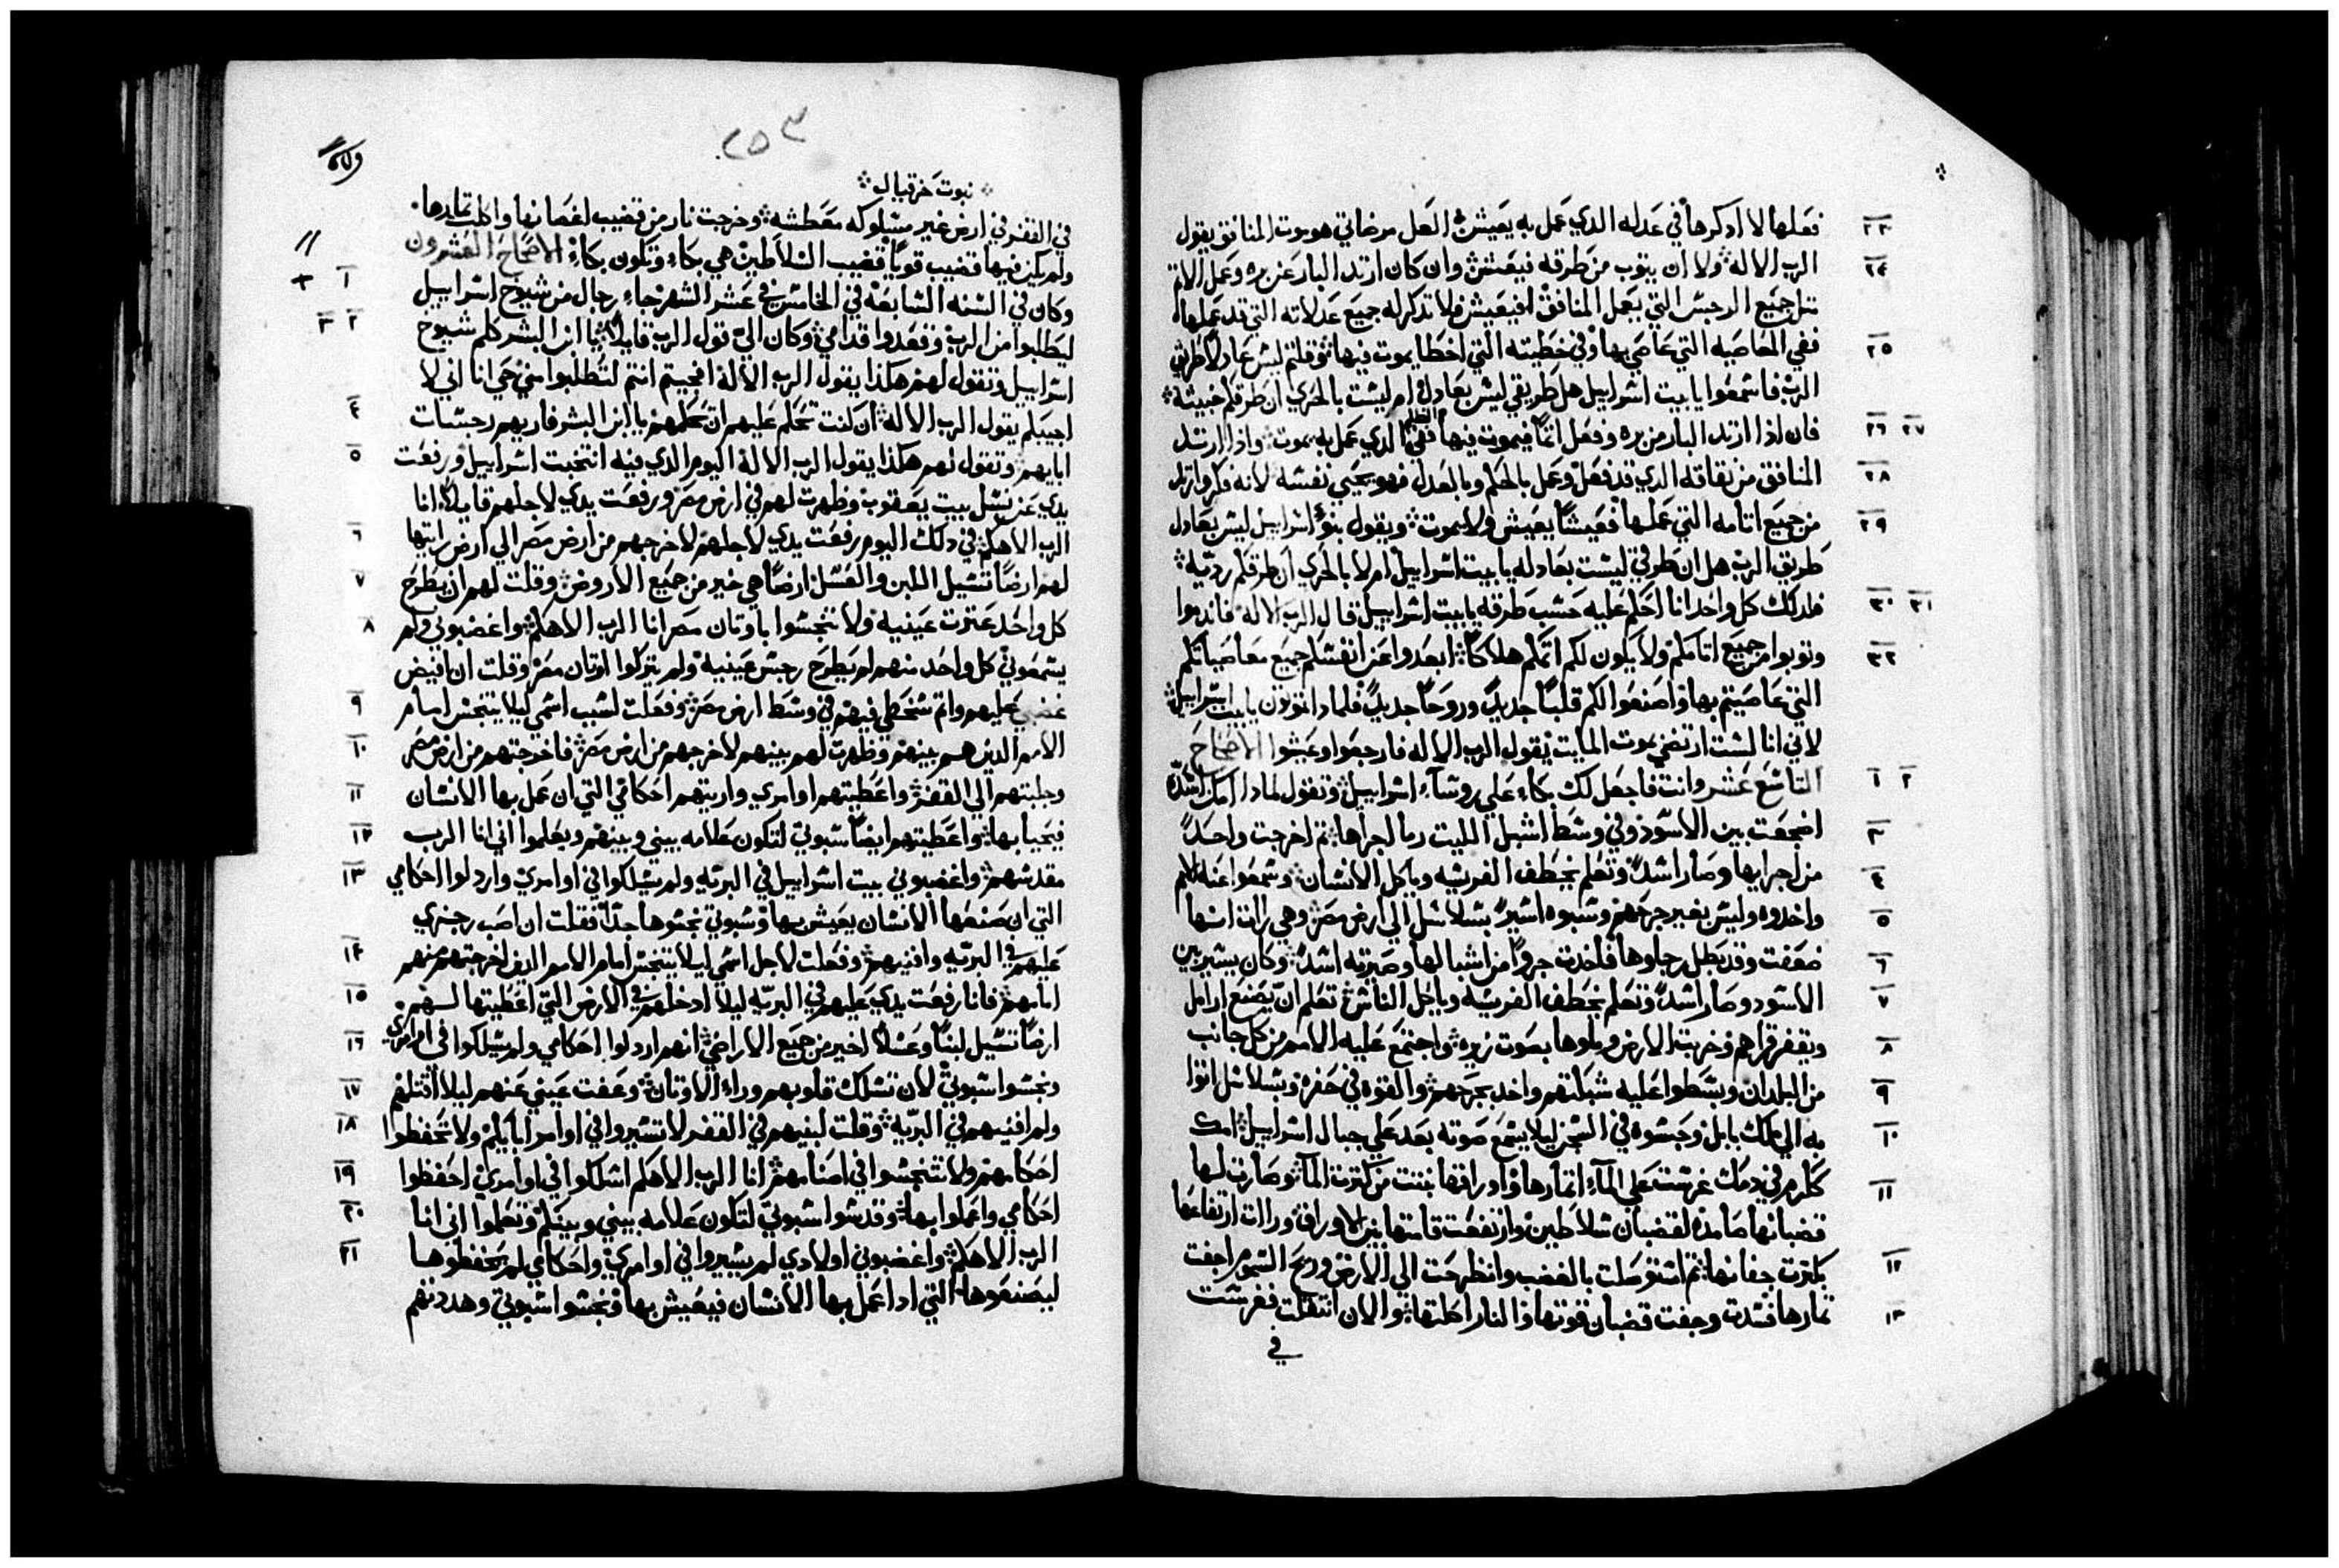 ٢٣ فعلها لا ادكرها في عدله الدي عمل به يعيش العل مرضاتي هو موت المنافق يقول
٢٤ الرب الاله ولا ان يتوب من طرقه فيعيش وان كان ارتد البار عن بره وعمل الاتم
متل جميع الرجس التي يعمل المنافق افيعيش فلا تدكر له جميع عدلاته التي قد عملها
٢٥ ففي المعاصيه التي عاصي بها وفي خطيته التي اخطا يموت فيها وقلتم ليس عادلا طريق
الرب فاسمعوا يا بيت اسراييل هل طريقي ليس بعادل ام ليست بالحري ان طرقكم خبيته
٢٦ ٢٧ فان ادا ارتد البار من بره وفعل اتما فيموت فيها ففي الظلم الدي عمل به يموت وادا ارتد
٢٨ المنافق من نفاقه الدي قد فعل وعمل بالحكم وبالعدل فهو يحيي نفسه لانه فكر وارتد
٢٩ من جميع اتامه التي عملها فعيشا يعيش ولا يموت ويقول بنو اسراييل ليس بعادل
طريق الرب هل ان طرقي ليست بعادله يا بيت اسراييل ام لا بالحري ان طرقكم رديه
٣٠ ٣١ فلدلك كل واحد انا احكم عليه حسب طرقه يا بيت اسراييل قال الرب الاله فاندموا
٣٢ وتوبوا من جميع اتامكم ولا يكون لكم اتمكم هلاكا ابعدوا عن انفسكم جميع معاصياتكم
التي عاصيتم بها واصنعوا لكم قلبا جديدا وروحا جديدا فلمادا تموتون يا بيت اسراييل
لاني انا لست ارتضي بموت المايت يقول الرب الاله فارجعوا وعيشوا الاصحاح
١ ٢ التاسع عشر وانت فاجعل لك بكاء علي روساء اسراييل وتقول لمادا امك اللبوه
٣ اضجعت بين الاسود وفي وسط اشبل الليت ربا لجراها تم اخرجت واحدا
٤ من اجرايها وصار اسدا وتعلم يخطف الفريسه وياكل الانسان وسمعوا عنه الامم
٥ واخدوه وليس بغير جرحهم وسبوه اسيرا بسلاسل الي ارض مصر وهي رات انها
٦ ضعفت وقد بطل رجاوها فاخدت جروا من اشبالها وصيرته اسدا وكان يسير بين
٧ الاسود وصار اسدا وتعلم يخطف الفريسه وياكل الناس تعلم ان يصنع ارامل
٨ ويقفر قراهم وخربت الارض وملوها بصوت زيره واجتمع عليه الامم من كل جانب
٩ من البلدان وبسطوا عليه شبكتهم واخد بجرحهم والقوه في حفره وبسلاسل اتوا
١٠ به الي ملك بابل وحبسوه في السجن ليلا يسمع صوته بعد علي جبال اسراييل امك
١١ ككرم في دمك غرست علي الماء اتمارها واوراقها نبتت من كترت الماء وصارت لها
قضبانها صامده لقضبان سلاطين وارتفعت قامتها بين الاوراق ورات ارتفاعها
١٢ بكترت جفانها تم استوصلت بالغضب وانطرحت الي الارض وريح السموم اجفت
١٣ تمارها فسدت وجفت قضبان قوتها والنار اكلتها والان انتقلت فغرست
في
٢٥٣
نبوت حزقيال
في القفر في ارض غير مسلوكه معطشه وخرجت نار من قضيب اغصانها واكلت تمارها
ولم يكن فيها قضيب قويا قضيب السلاطين هي بكاء وتكون بكاء الاصحاح العشرون
١ وكان في السنه السابعه في الخامس في عشر الشهر جاء رجال من شيوخ اسراييل
٢ ٣ ليطلبوا من الرب وقعدوا قدامي وكان الي قول الرب قايلا يا ابن البشر كلم شيوخ
اسراييل وتقول لهم هكدا يقول الرب الاله افجيتم انتم لتطلبوا مني حي انا اني لا
٤ اجيبكم يقول الرب الاله ان كنت تحكم عليهم ان تحكمهم يا ابن البشر فاريهم رجسات
٥ ابايهم وتقول لهم هكدا يقول الرب الاله اليوم الدي فيه انتخبت اسراييل ورفعت
يدي عن نسل بيت يعقوب وظهرت لهم في ارض مصر ورفعت يدي لاجلهم قايلا انا
٦ الرب الاهكم في دلك اليوم رفعت يدي لاجلهم لاخرجهم من ارض مصر الي ارض رايتها
٧ لهم ارضا تسيل اللبن والعسل ارضا هي خير من جميع الاروض وقلت لهم ان يطرح
٨ كل واحد عترت عينيه ولا تنجسوا باوتان مصر انا الرب الاهكم واغضبوني ولم
يسمعوني كل واحد منهم لم يطرح رجس عينيه ولم يتركوا اوتان مصر وقلت ان افيض
٩ غضبي عليهم واتم سخطي فيهم في وسط ارض مصر وفعلت لسبب اسمي ليلا يتنجس امام
١٠ الامم الدين هم بينهم وظهرت لهم بينهم لاخرجهم من ارض مصر فاخرجتهم من ارض مصر
١١ وجلبتهم الي القفر واعطيتهم اوامري واريتهم احكامي التي ان عمل بها الانسان
١٢ فيحيا بها واعطيتهم ايضا سبوتي لتكون علامه بيني وبينهم ويعلموا اني انا الرب
١٣ مقدسهم واغضبوني بيت اسراييل في البريه ولم يسلكوا في اوامري واردلوا احكامي
التي ان صنعها الانسان يعيش بها وسبوتي نجسوها جدا فقلت ان اصب رجزي
١٤ عليهم في البريه وافنيهم وفعلت لاجل اسمي ليلا يتنجس امام الامم الدين اخرجتهم منهم
١٥ امامهم فانا رفعت يدي عليهم في البريه ليلا ادخلهم في الارض التي اعطيتها لهم
١٦ ارضا تسيل لبنا وعسلا اخير من جميع الاراضي انهم اردلوا احكامي ولم يسلكوا في اوامري
١٧ ونجسوا سبوتي لان تسلك قلوبهم وراء الاوتان وعفت عيني عنهم ليلا اقتلهم
١٨ ولم افنيهم في البريه وقلت لبنيهم في القفر لا تسيروا في اوامر ابايكم ولا تحفظوا
١٩ احكامهم ولا تتنجسوا في اصنامهم انا الرب الاهكم اسلكوا في اوامري احفظوا
٢٠ احكامي واعملوا بها وقدسوا سبوتي لتكون علامه بيني وبينكم وتعلموا اني انا
٢١ الرب الاهكم واغضبوني اولادي لم يسيروا في اوامري واحكامي لم يحفظوها
ليصنعوها التي ادا عمل بها الانسان فيعيش بها ونجسوا سبوتي وهددتهم